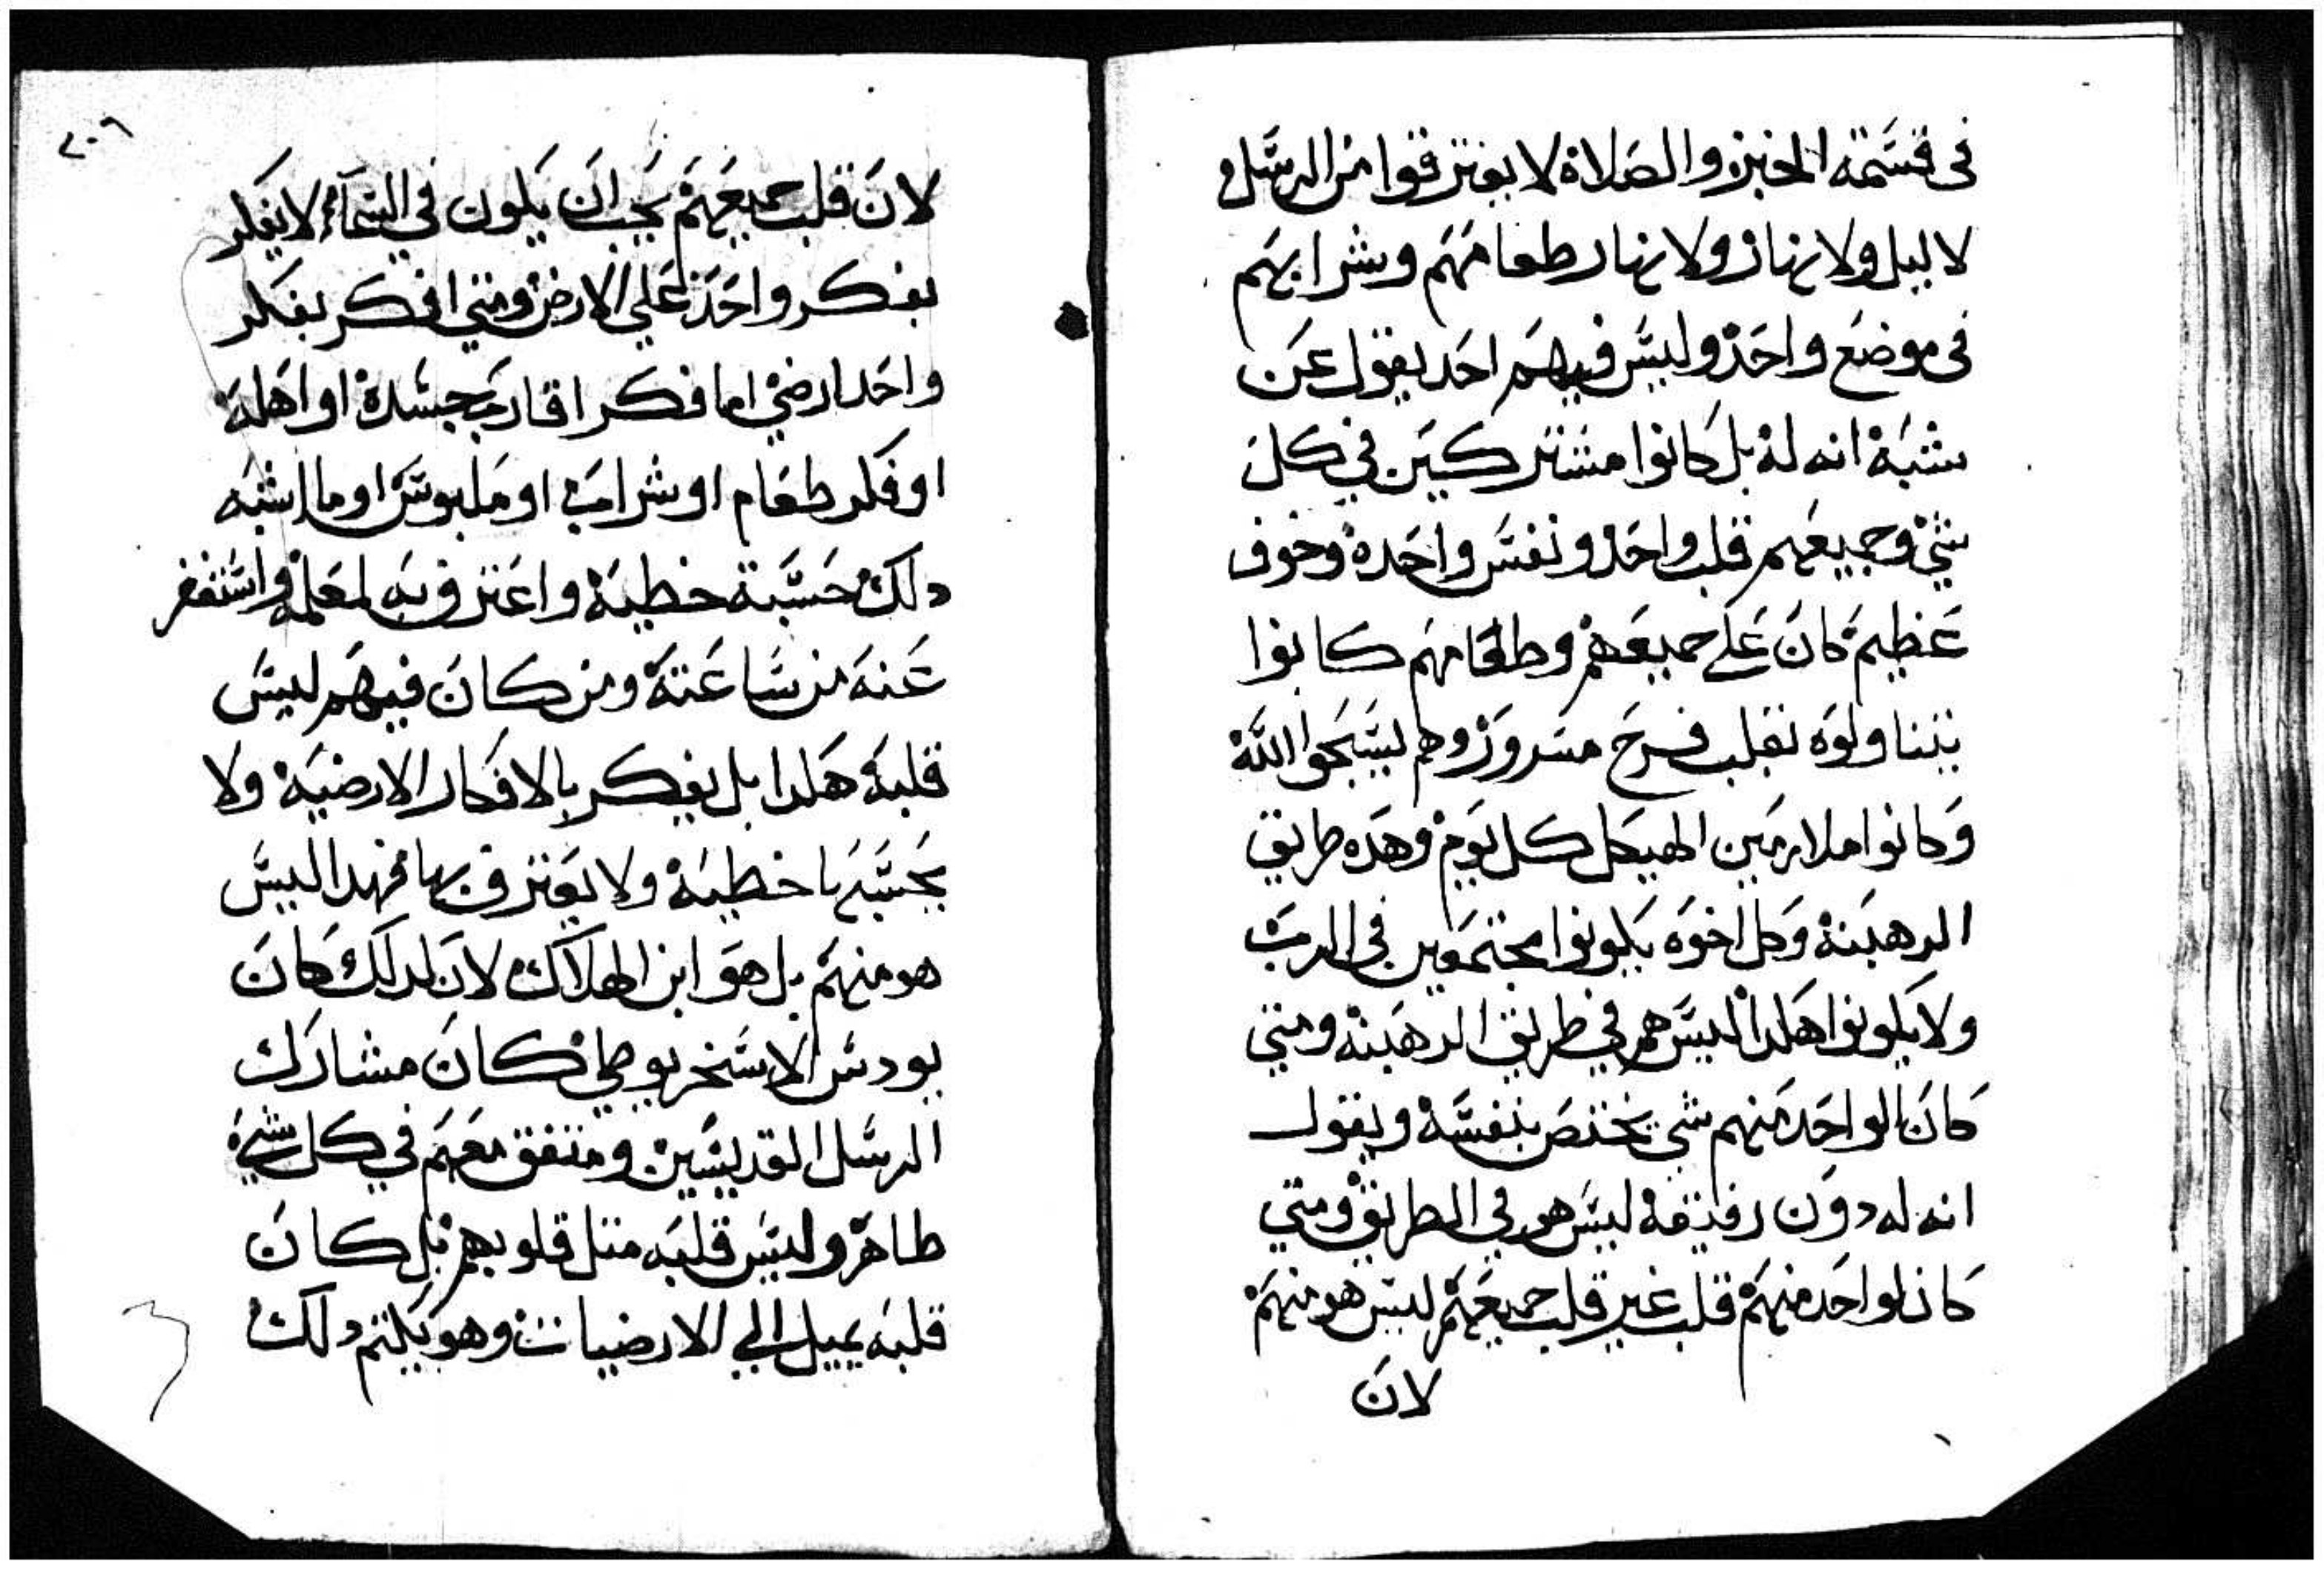 فى قسمة الخبز والصلاة لا يفترقوا من الرسل
لا ليل ولا نهار ولا نهار طعامهم وشرابهم
فى موضع واحد وليس فيهم احد يقول عن
شبه انه له بل كانوا مشتركين في كل
شي وجميعهم قلب واحد ونفس واحدة وخوف
عظيم كان على جميعهم وطعامهم كانوا
يتناولوه بقلب فرح مسرور وهم يسبحوا الله
وكانوا ملازمين الهيكل كل يوم وهده طريق
الرهبنة وكل اخوه يكونوا مجتمعين فى الرب
ولا يكونوا هكدا ليس هم في طريق الرهبنه ومتي
كان لواحد منهم شي يختص بنفسه ويقول
انه له دون رفيقه ليس هو في الطريق ومتي
كان لواحد منهم قلب غير قلب جميعهم ليس هو منهم
لان
٢٠٦
لان قلب جميعهم يجب ان يكون في السماء لا يفكر
بفكر واحد علي الارض ومتي افكر بفكر
واحد ارضي اما فكر اقارب جسده او اهله
او فكر طعام او شراب او ملبوس او ما اشبه
دلك حسبه خطيه واعترف به لمعلمه واستغفر
عنه من ساعته ومن كان فيهم ليس
قلبه هكدا بل يفكر بالافكار الارضيه ولا
يحسبها خطيه ولا يعترف بها فهدا ليس
هو منهم بل هو ابن الهلاك لان لدلك كان
يودس الاسخريوطي كان مشارك
الرسل القديسين ومتفق معهم في كل شي
طاهر وليس قلبه متل قلوبهم بل كان
قلبه يميل الي الارضيات وهو يكتم دلك